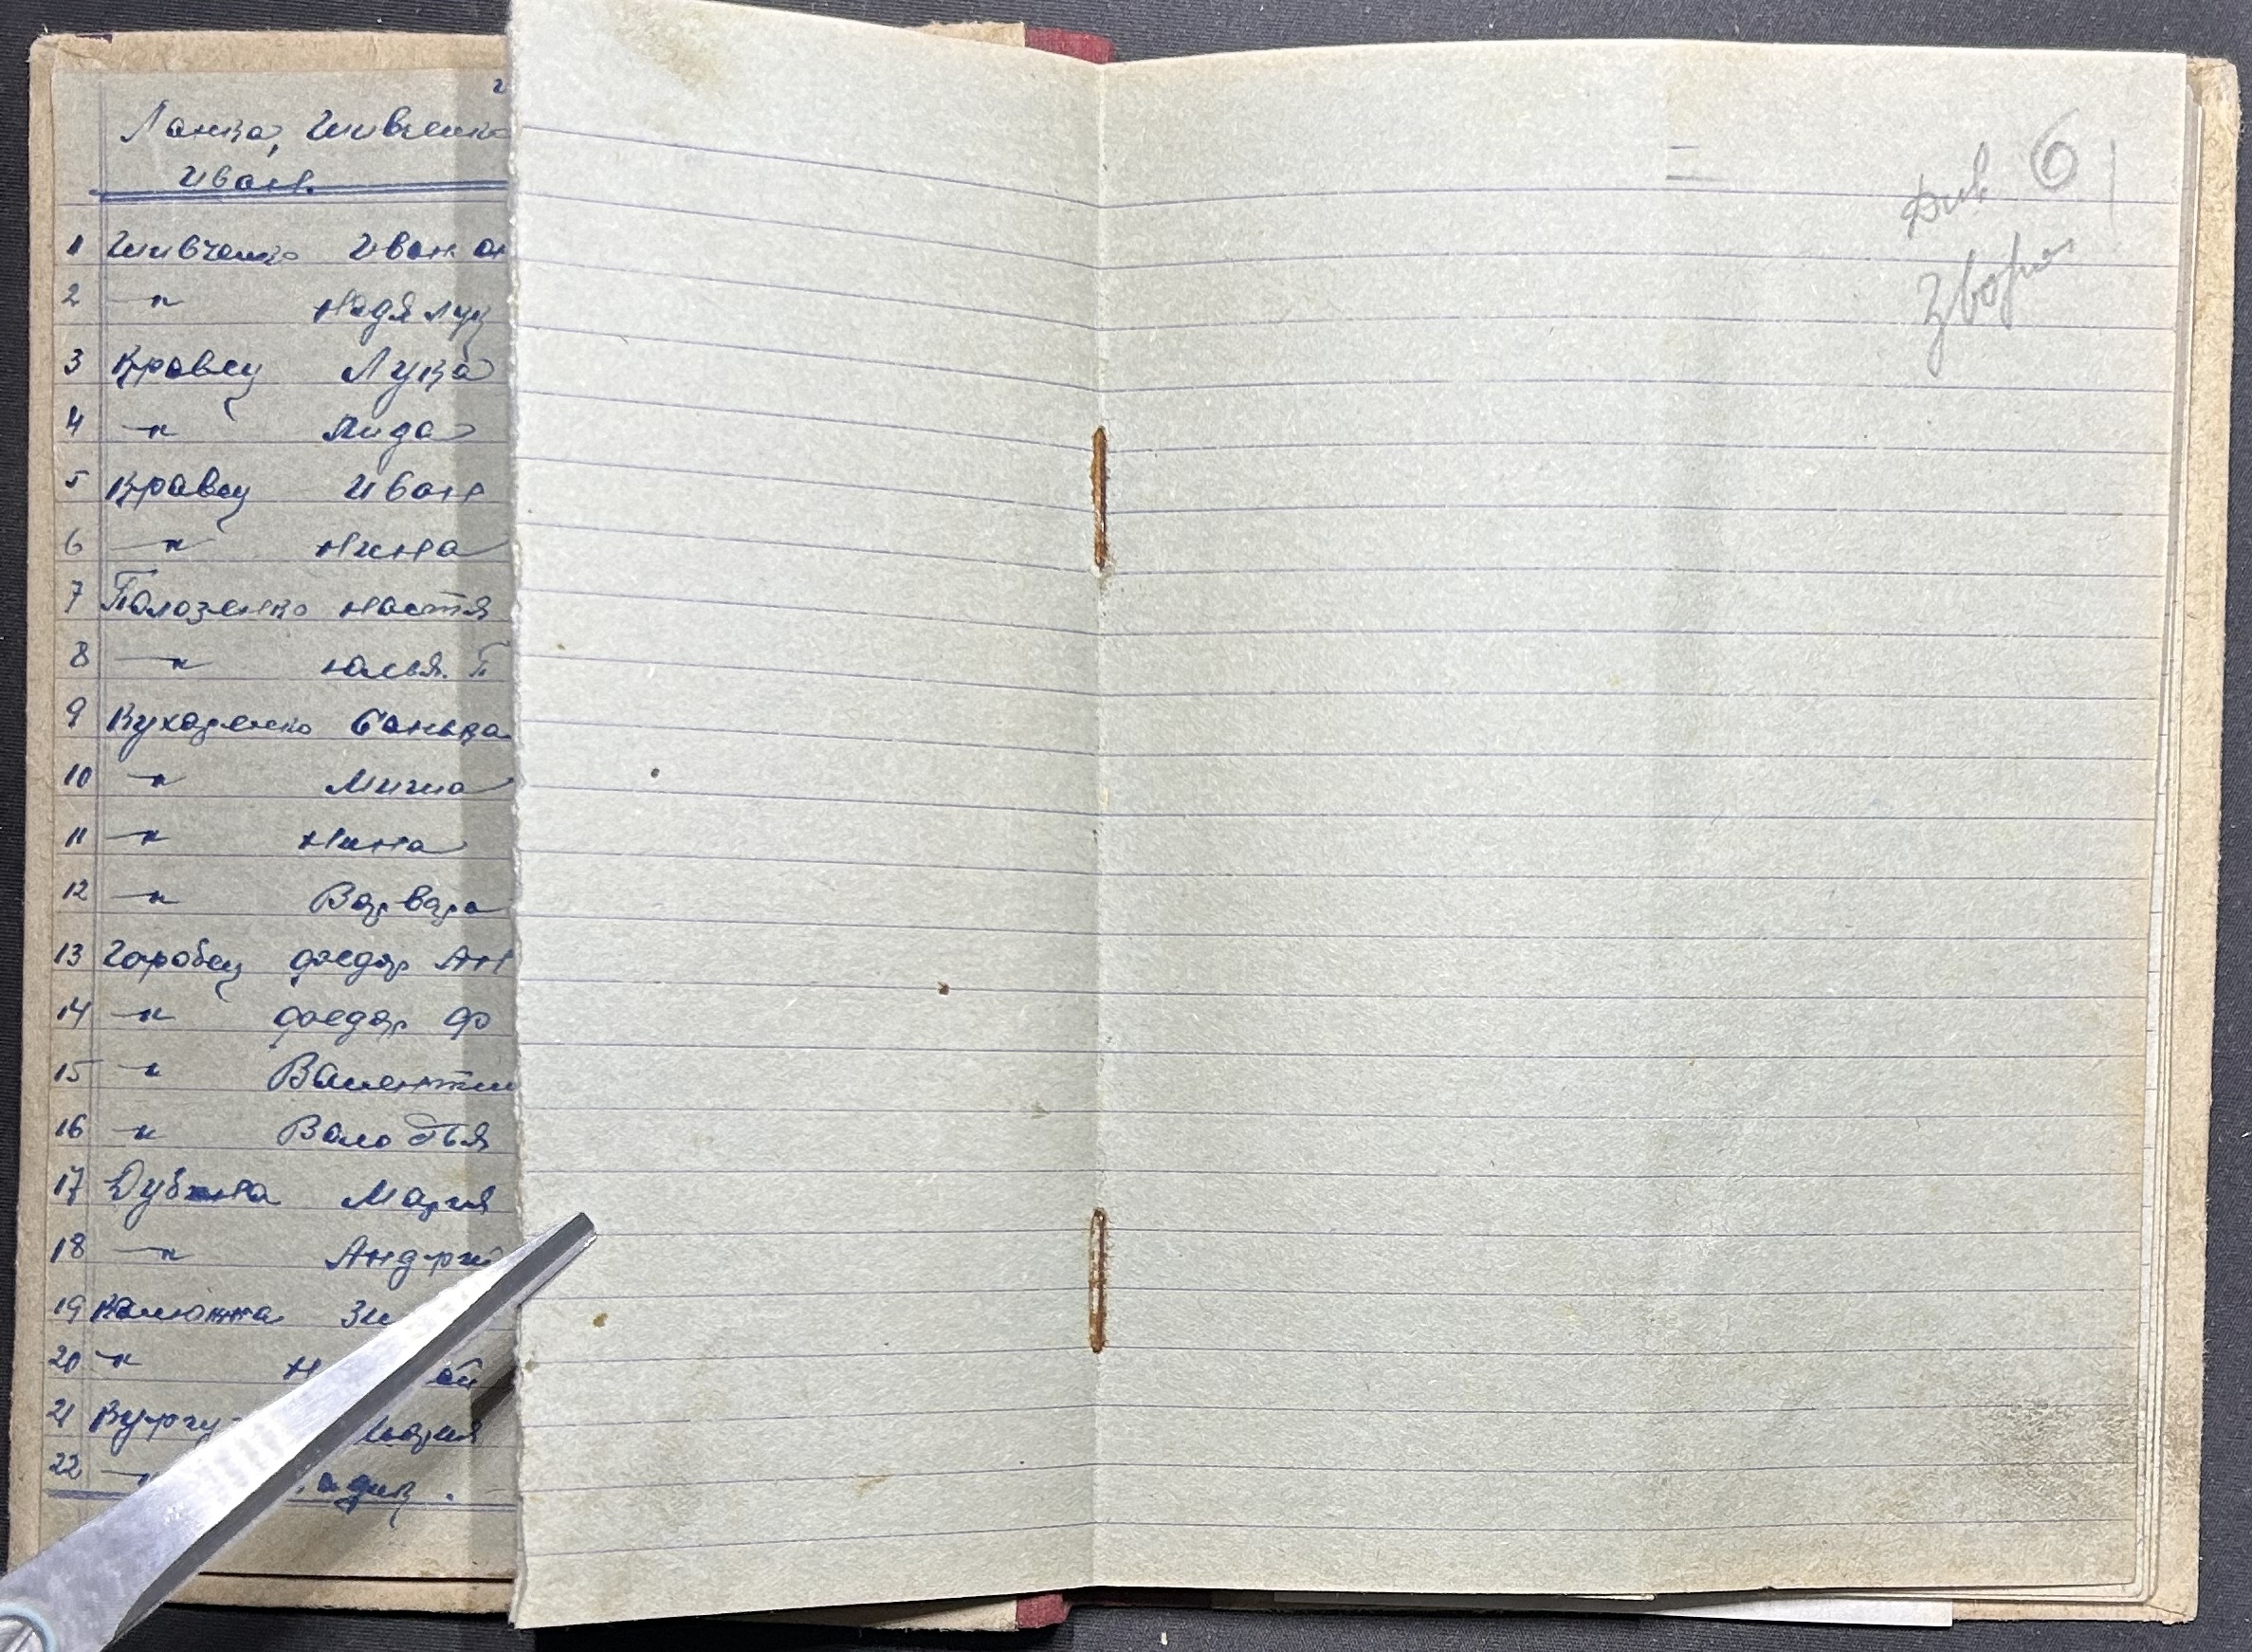 Ланка, Шивченко
Иван.
1 Шивченко Иван
2 —"— Надя Лук
3 Кравец Лука
4 —"— Лида
5 Кравец Иван
6 —"— Нина
7 Полозенко Настя
8 —"— Юлья. П
9 Кухаренко Санька
10 —"— Миша
11 —"— Нина
12 —"— Варвара
13 Горобец Федор Ан
14 —"— Федор Ф
15 —"— Валентин
16 —"— Володья
17 Дубина Мария
18 —"— Андрий
19 Калюжна Зи
20 —"— Н
21 Кургу Мария
22 —"— адик.
Див 6
Зворот